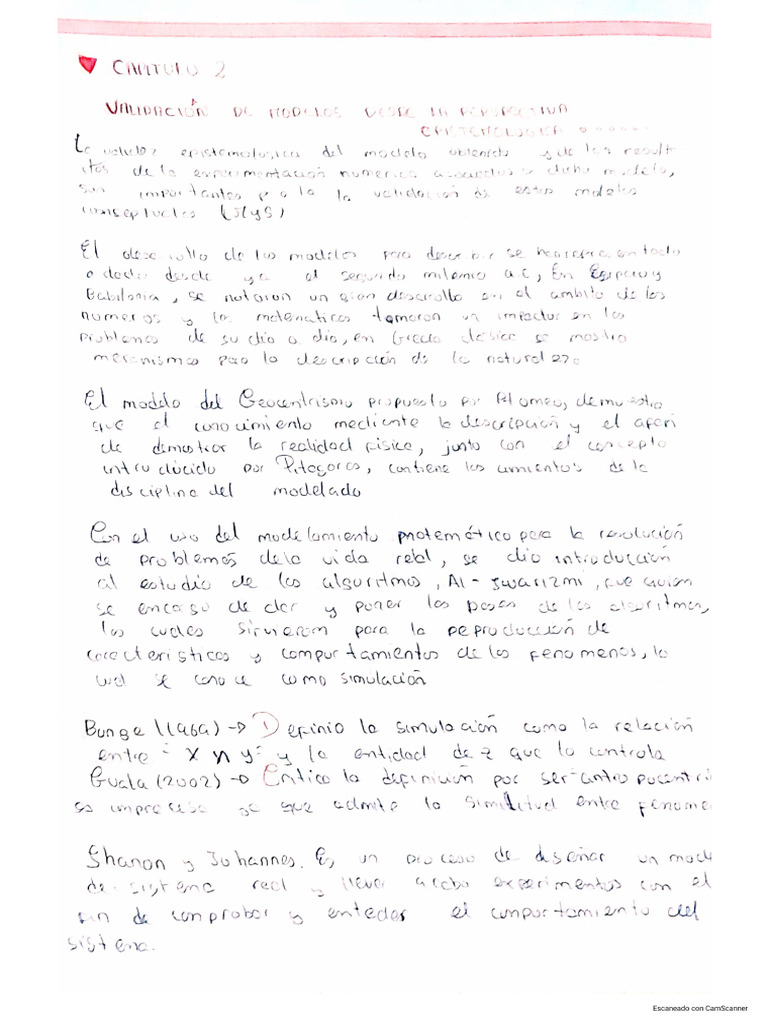 CAPITULO 2
VALIDACIÓN DE MODELOS DESDE LA PERSPECTIVA
EPISTEMOLOGICA
La validez epistemologica del modelo obtenido y de los result
ados de la experimentación numerica asociados a dicho modelo,
son importantes para la validación de estos modelos
conseptuales (JyS)
El desarrollo de los modelos para describir se
desde ya el segundo milenio a.C, En Egipcio y
Babilonia, se notaron un gran desarrollo en el ambito de los
numeros y las matematicas tomaron un impacto en los
problemas de su dia a dia, en Grecia clasica se mostro
mecanismos para la descripción de la naturaleza
El modelo del Geocentrismo propuesto por Ptlomeo, demuestra
que el conocimiento mediante la descripción y el afan
de demostrar la realidad fisica, junto con el concepto
introducido por Pitagoras, contiene los cimientos de la
disciplina del modelado
Con el uso del modelamiento matemático para la resolución
de problemas de la vida real, se dio introducción
al estudio de los algoritmos, Al-Jwarizmi, fue quien
se encargo de dar y poner las bases de los algoritmos,
los cuales sirvieron para la reproducción de
caracteristicas y comportamientos de los fenomenos, lo
cual se conoce como simulación
Bunge (1969) → Definio la simulación como la relación
entre x y y la entidad de z que lo controla
Guala (2002) → Critico la definición por ser antropocentri
imprecisa ya que admite la similitud entre fenome
Shanon y Johannes. Es un proceso de diseñar un mode
de sistema real y llevar acabo experimentos con el
fin de comprobar y enteder el comportamiento del
sistema.
Escaneado con CamScanner